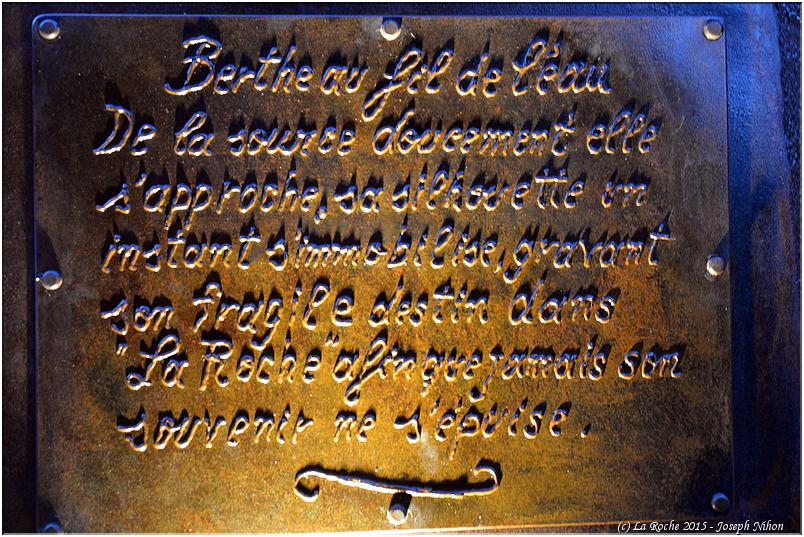 Berthe au fil de l'eau
De la source doucement elle
s'approche, sa silhouette un
instant s'immobilise, gravant
son fragile destin dans
"La Roche" afin que jamais son
souvenir ne s'épuise.
(c) La Roche 2015 - Joseph Nihon